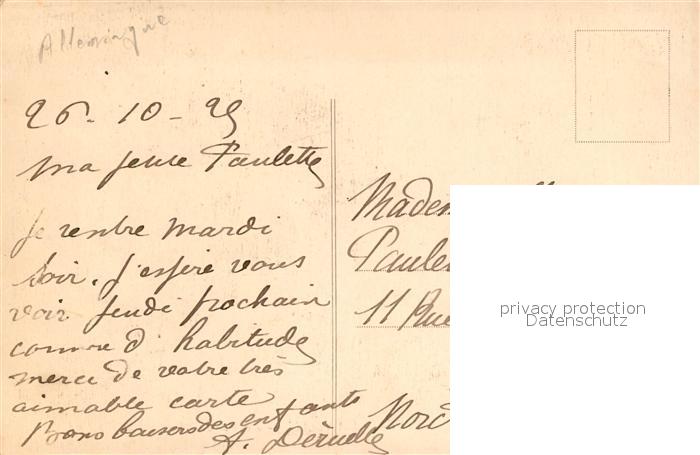 Allemagne
26 - 10 - 25
Ma petite Paulette
Je rentre mardi
soir. J'espère vous
voir jeudi prochain
comme d'habitude
merci de votre très
aimable carte
Bons baisers des enfants
A. Deruelle
Madem
Paule
11 Rue
privacy protection
Datenschutz